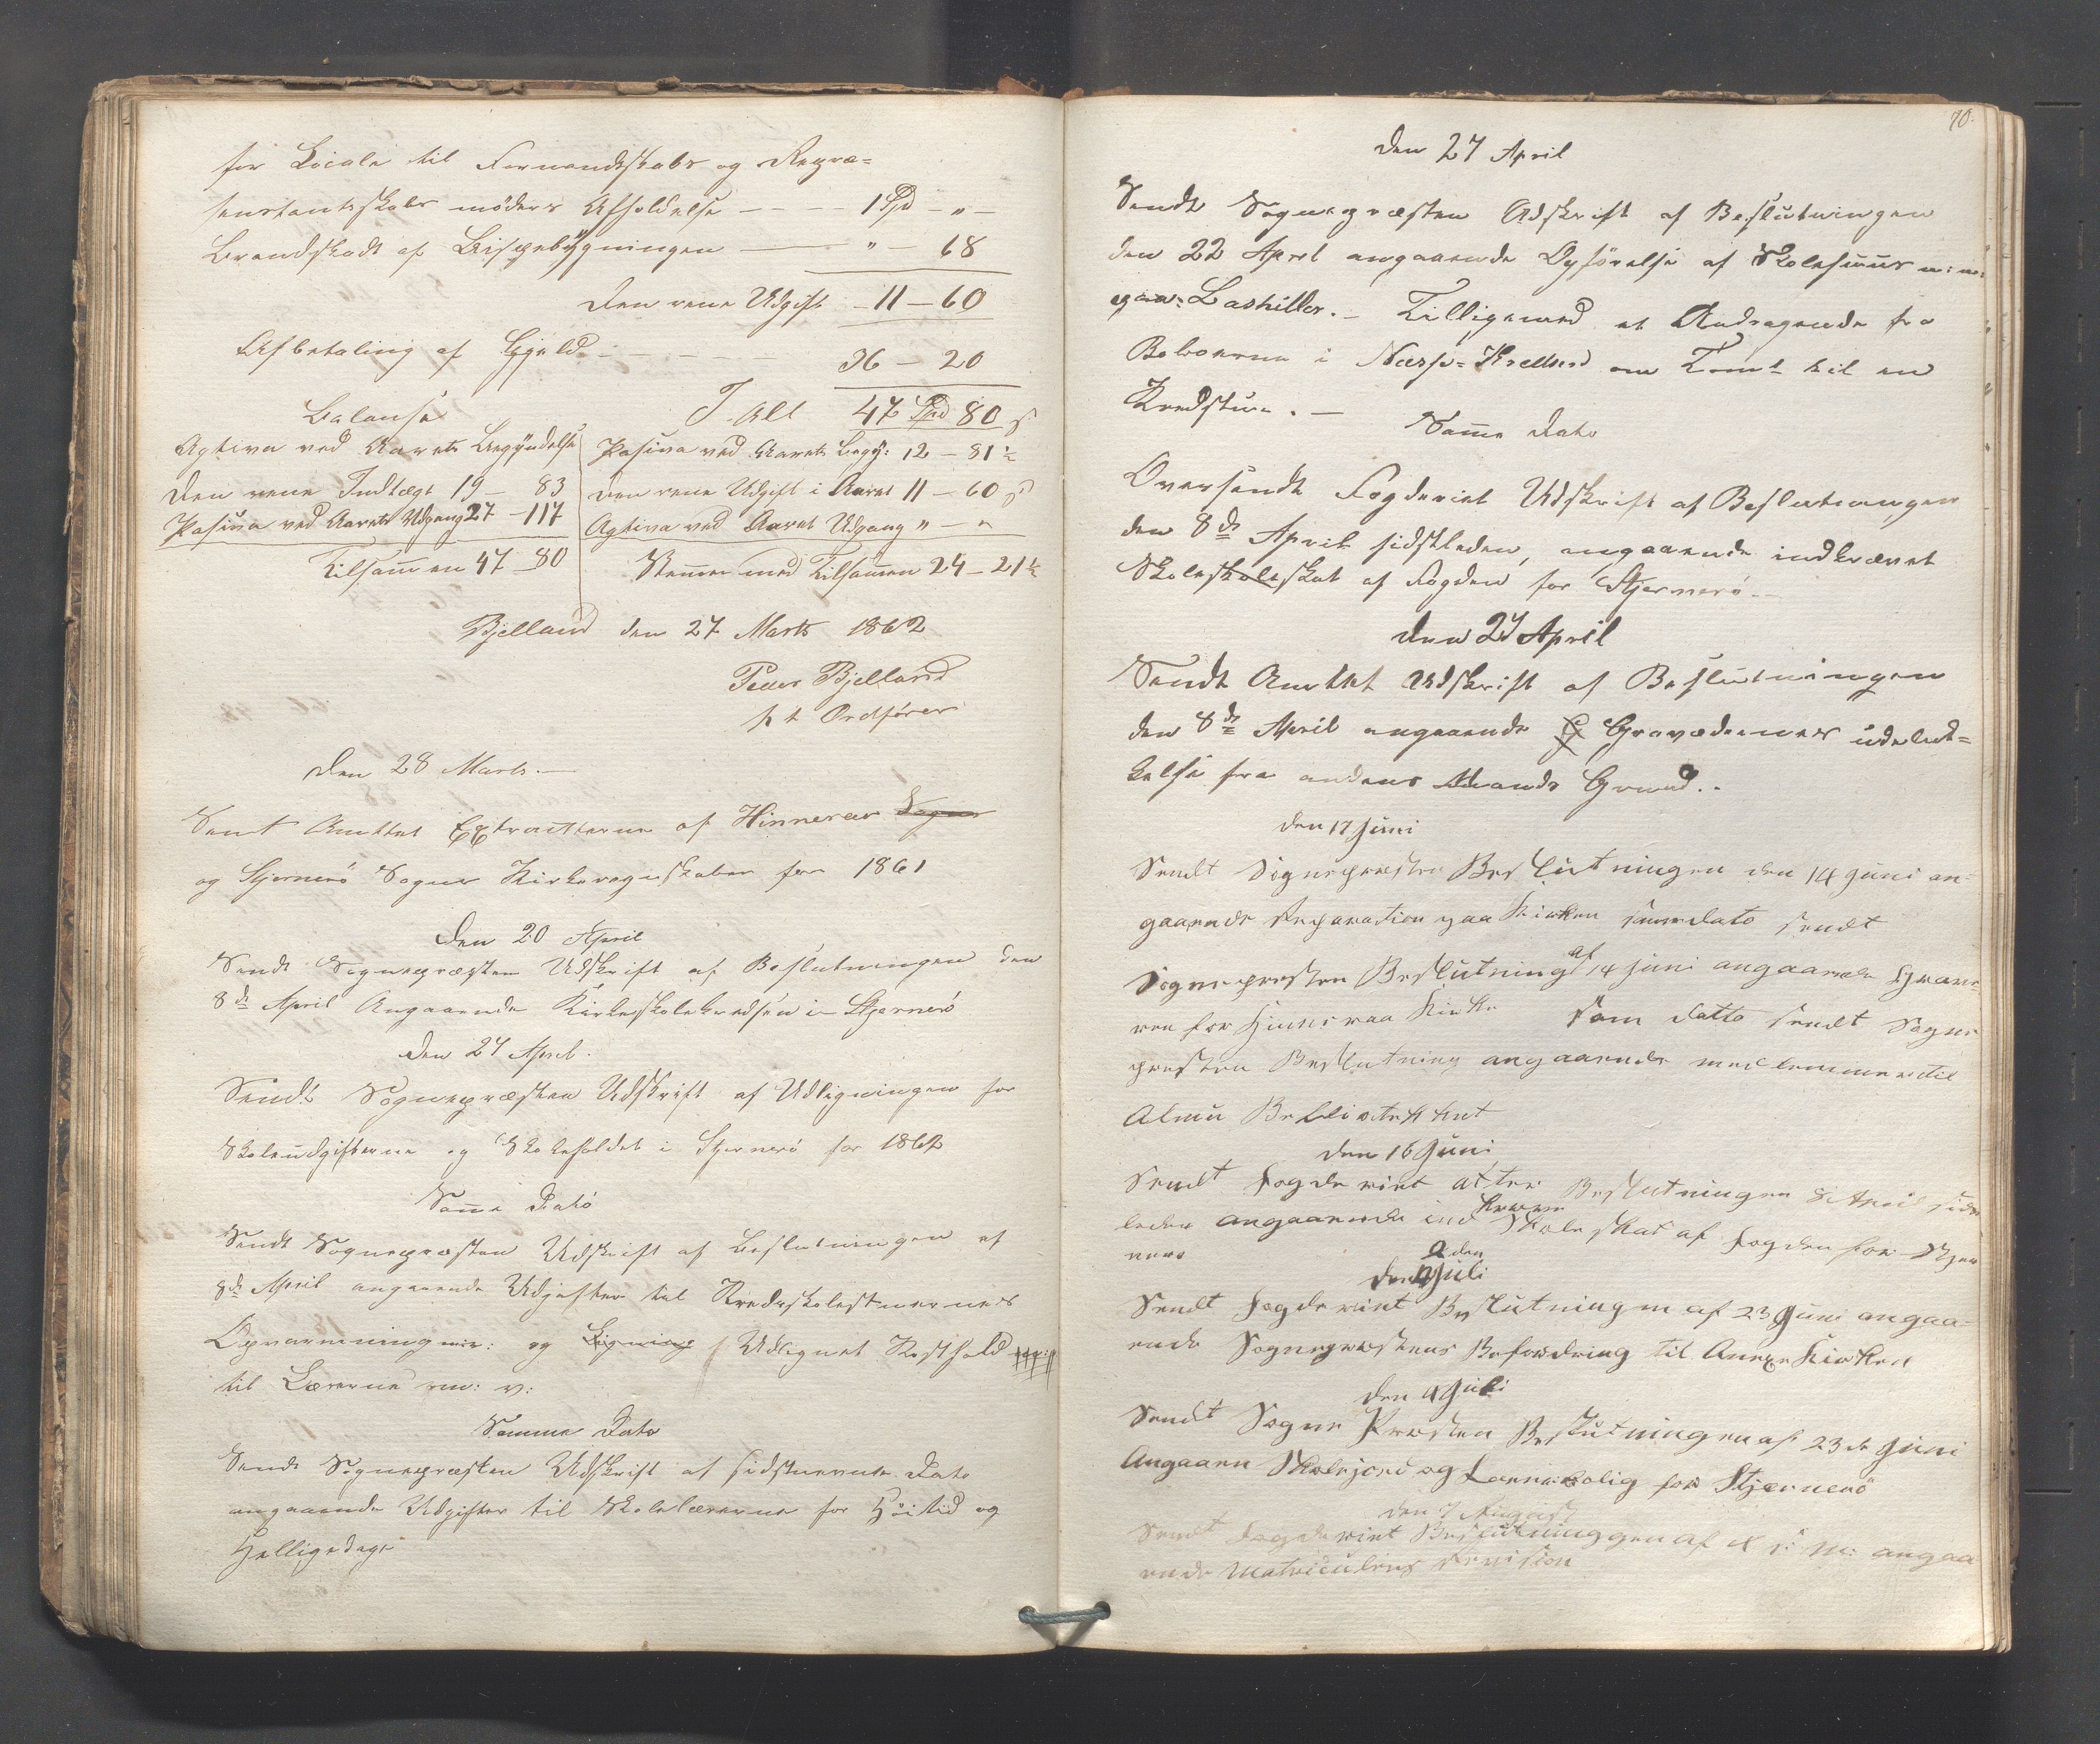 for Locale til Formandskabs og Repræ=
sentantskabs møders Afholdelse — 1 Spd — " —
Brandskat af Bispebygningen — " — 68
Den rene Udgift — 11 — 60
Afbetaling af Gjeld — 36 — 20
I Alt 47 Spd 80 s
Balanse
Agtiva ved Aarets Begyndelse
Pasiva ved Aarets Begy: 12 — 81½
Den rene Indtægt 19 — 83
Den rene Udgift i Aaret 11 — 60 s
Pasiva ved Aarets Udgang 27 — 117
Agtiva ved Aaret Udgang " — "
Tilsammen 47 — 80
Stemmer med Tilsammen 24 — 21½
Bjelland den 27 Marts 1862
Peder Bjelland
p t Ordfører
Den 28 Marts. —
Sent Amttet Extracterne af Hinneraa Sogne
og Stjernerö Sogns Kirkeregnskaber for 1861
Den 20 April
Sendt Sognepræsten Udskrift af Beslutningen den
8de April Angaaende Kirkeskolekredsen i Stjernerö
Den 27 April.
Sendt Sognepræsten Udskrift af Udligningen for
Skoleudgifterne og Skoleholdet i Stjernerö for 1862
Samme Dato
Sendt Sognepræsten Udskrift af Beslutningen af
8de April angaaende Udgifter til Kredsskolestuernes
Opvarmning m: og Ligning Udlignet Kosthold
til Lærerne m: v:
Samme Dato
Sendt Sognepræsten Udskrift af sidstnevnte Dato
angaaende Udgifter til Skolelærerne for Høitid og
Helligedage
70.
Den 27 April
Sendt Sognepræsten Udskrift af Beslutningen
den 22 April angaaende Opførelse af Skolehuus m: m:
paa Lashiller. — Tilligemed et Andragende fra
Beboerne i om Tomt til en
Kredstue. —
Samme Dato
Oversendt Fogderiet Udskrift af Beslutningen
den 8de April sidstleden, angaaende indkrævet
Skoleskoleskat af Fogden for Stjernerö. —
Den 27 April
Sendt Amttet Udskrift af Beslutningen
den 8de April angaaende G Gravødernes udeluk=
kelse fra andens Mands Grund. .
Den 17 Juni
Sendt Sognepræsten Beslutningen den 14 Juni an=
gaaende Reparation paa Kirken samme Dato sendt
Sognepresten Beslutning af 14 Juni angaaende Grave=
ren for Hinneraa Kirke Sam Datto sendt Sogne
presten Beslutning angaaende medlemmer til
Almu Bebliotekket
Den 16 Juni
Sendt Fogderiet atter Beslutningen 8 April sidst
leden angaaende ind kræven Skoleskat af Fogden for Stjer
nerö
2 den
Den Juli
Sendt Fogderiet Beslutningen af 23 Juni angaa=
ende Sognepræstens Befordring til Anexe Kirken
Den 4 Juli
Sendt Sogne Præsten Beslutningen af 23 de Juni
Angaaen Skolejord og Lærerbolig for Stjernerö
Den 7 August
Sendt Fogderiet Beslutninggen af s: M: angaa
ende Matriculens Revision